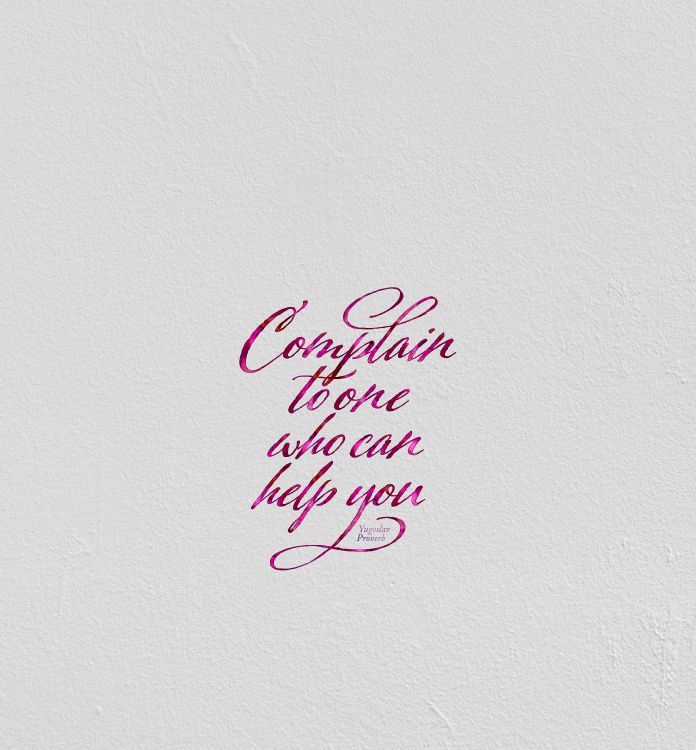 Complain
to one
who can
help you
Yugoslav
Proverb